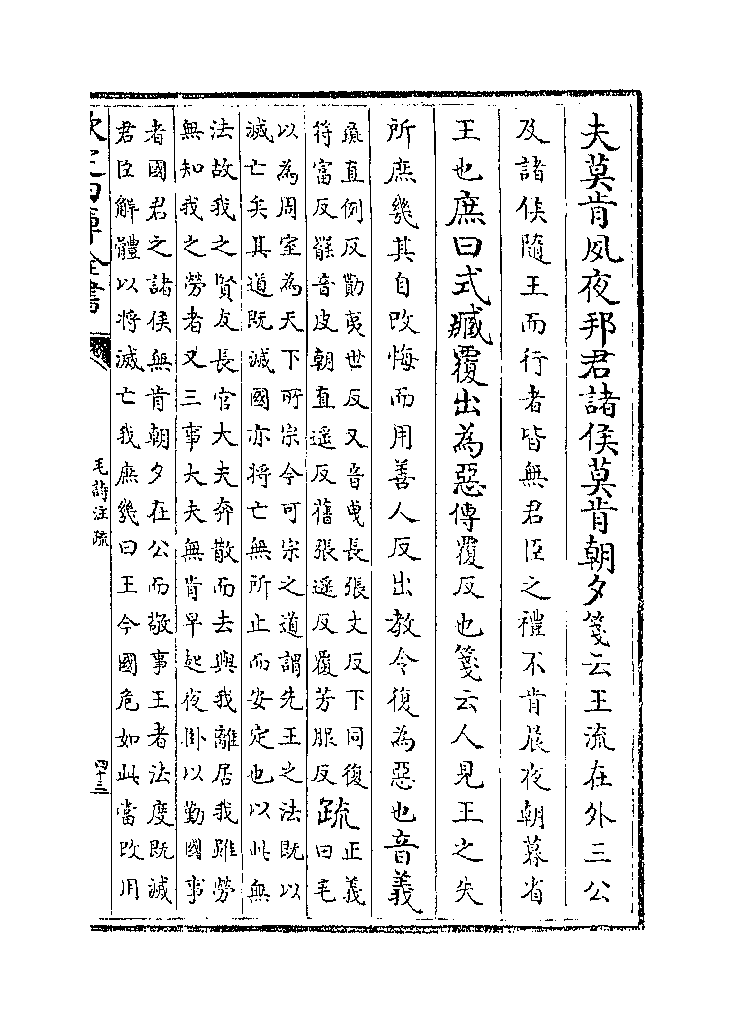 夫莫肯夙夜邦君諸侯莫肯朝夕箋云王流在外三公
及諸侯隨王而行者皆無君臣之禮不肯晨夜朝暮省
王也庶曰式臧覆出為惡傳覆反也箋云人見王之失
所庶幾其自改悔而用善人反出教令復為惡也音義
彘直例反勩夷世反又音曳長張丈反下同復
符富反罷音皮朝直遥反舊張遥反覆芳服反
疏
正義
曰毛
以為周室為天下所宗今可宗之道謂先王之法既以
滅亡矣其道既滅國亦將亡無所止而安定也以此無
法故我之賢友長官大夫奔散而去與我離居我雖勞
無知我之勞者又三事大夫無肯早起夜卧以勤國事
者國君之諸侯無肯朝夕在公而敬事王者法度既滅
君臣解體以將滅亡我庶幾曰王今國危如此當改用
欽定四庫全書
毛詩注疏
四十三